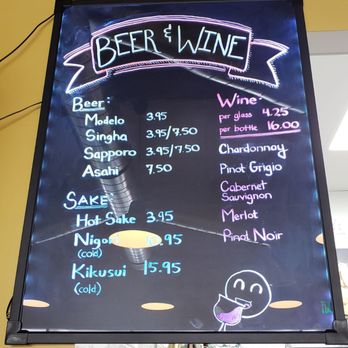 BEER & WINE
Beer:
Modelo 3.95
Singha 3.95/7.50
Sapporo 3.95/7.50
Asahi 7.50
SAKE
Hot Sake 3.95
Nigori .95
(cold)
Kikusui 15.95
(cold)
Wine
per glass 4.25
per bottle 16.00
Chardonnay
Pinot Grigio
Cabernet
Sauvignon
Merlot
Pinot Noir